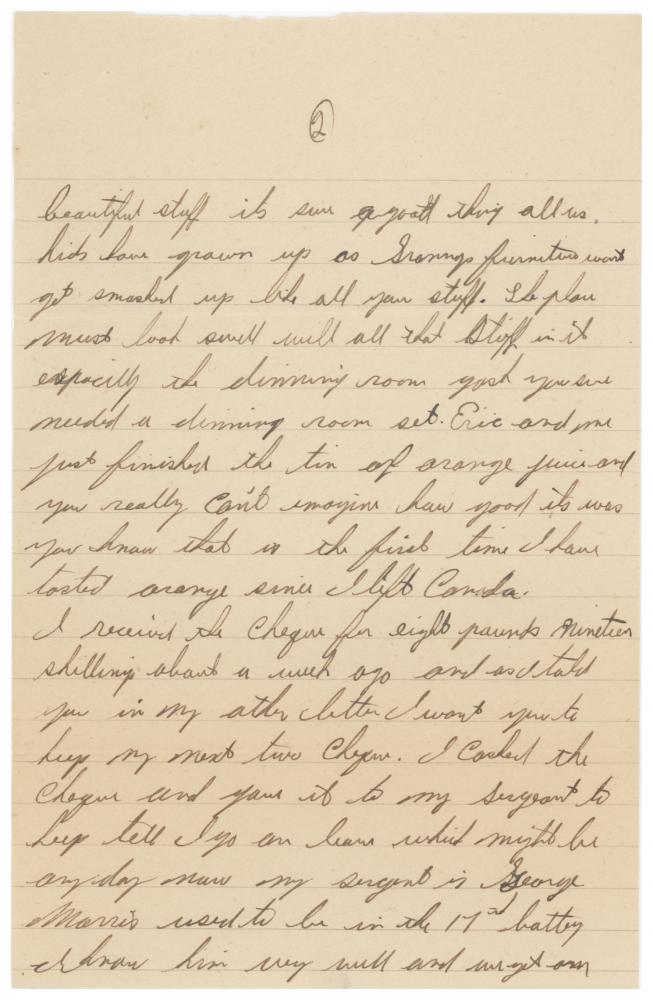 2
beautiful stuff its sure a good thing all us.
kids have grown up as Grannys furniture wont
get smashed up like all your stuff. The place
must look swell will all that stuff in it
espacilly the dinning room gosh you sure
needed a dinning room set. Eric and me
just finished the tin of orange juice and
you really can't imagine how good its was
you know that is the first time I have
tasted orange since I left Canada.
I received the cheque for eight pounds nineteen
shilling about a week ago and as I told
you in my other letter I want you to
keep my next two cheque. I cashed the
cheque and gave it to my sergeant to
keep tell I go on leave which might be
any day now my sergent is George
Morris used to be in the 17th battey
I know him very well and we get on